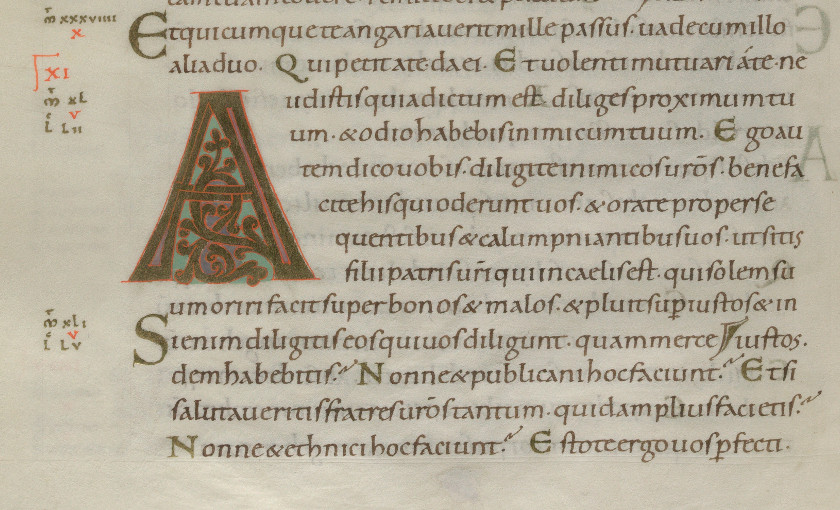 m xxxviiii
x
Et quicumque te angariaverit mille passus. vade cum illo
alia duo. Qui petit a te. da ei. Et volenti mutuari á te. ne
XI
m xl
v
L Lii
Audistis quia dictum est. diliges proximum tu
um. & odio habebis inimicum tuum. Ego au
tem dico vobis. diligite inimicos urōs. benefa
cite his qui oderunt vos. & orate pro perse
quentibus & calumpniantibus vos. ut sitis
filii patris ur̄i qui in caelis est. qui solem su
um oriri facit super bonos & malos. & pluit sup iustos & in
iustos.
m xli
v
L Lv
Si enim diligitis eos qui vos diligunt. quam merce
dem habebitis. Nonne & publicani hoc faciunt. Et si
salutaveritis fratres urōs tantum. quid amplius facietis.
Nonne & ethnici hoc faciunt. Estote ergo vos pfecti.